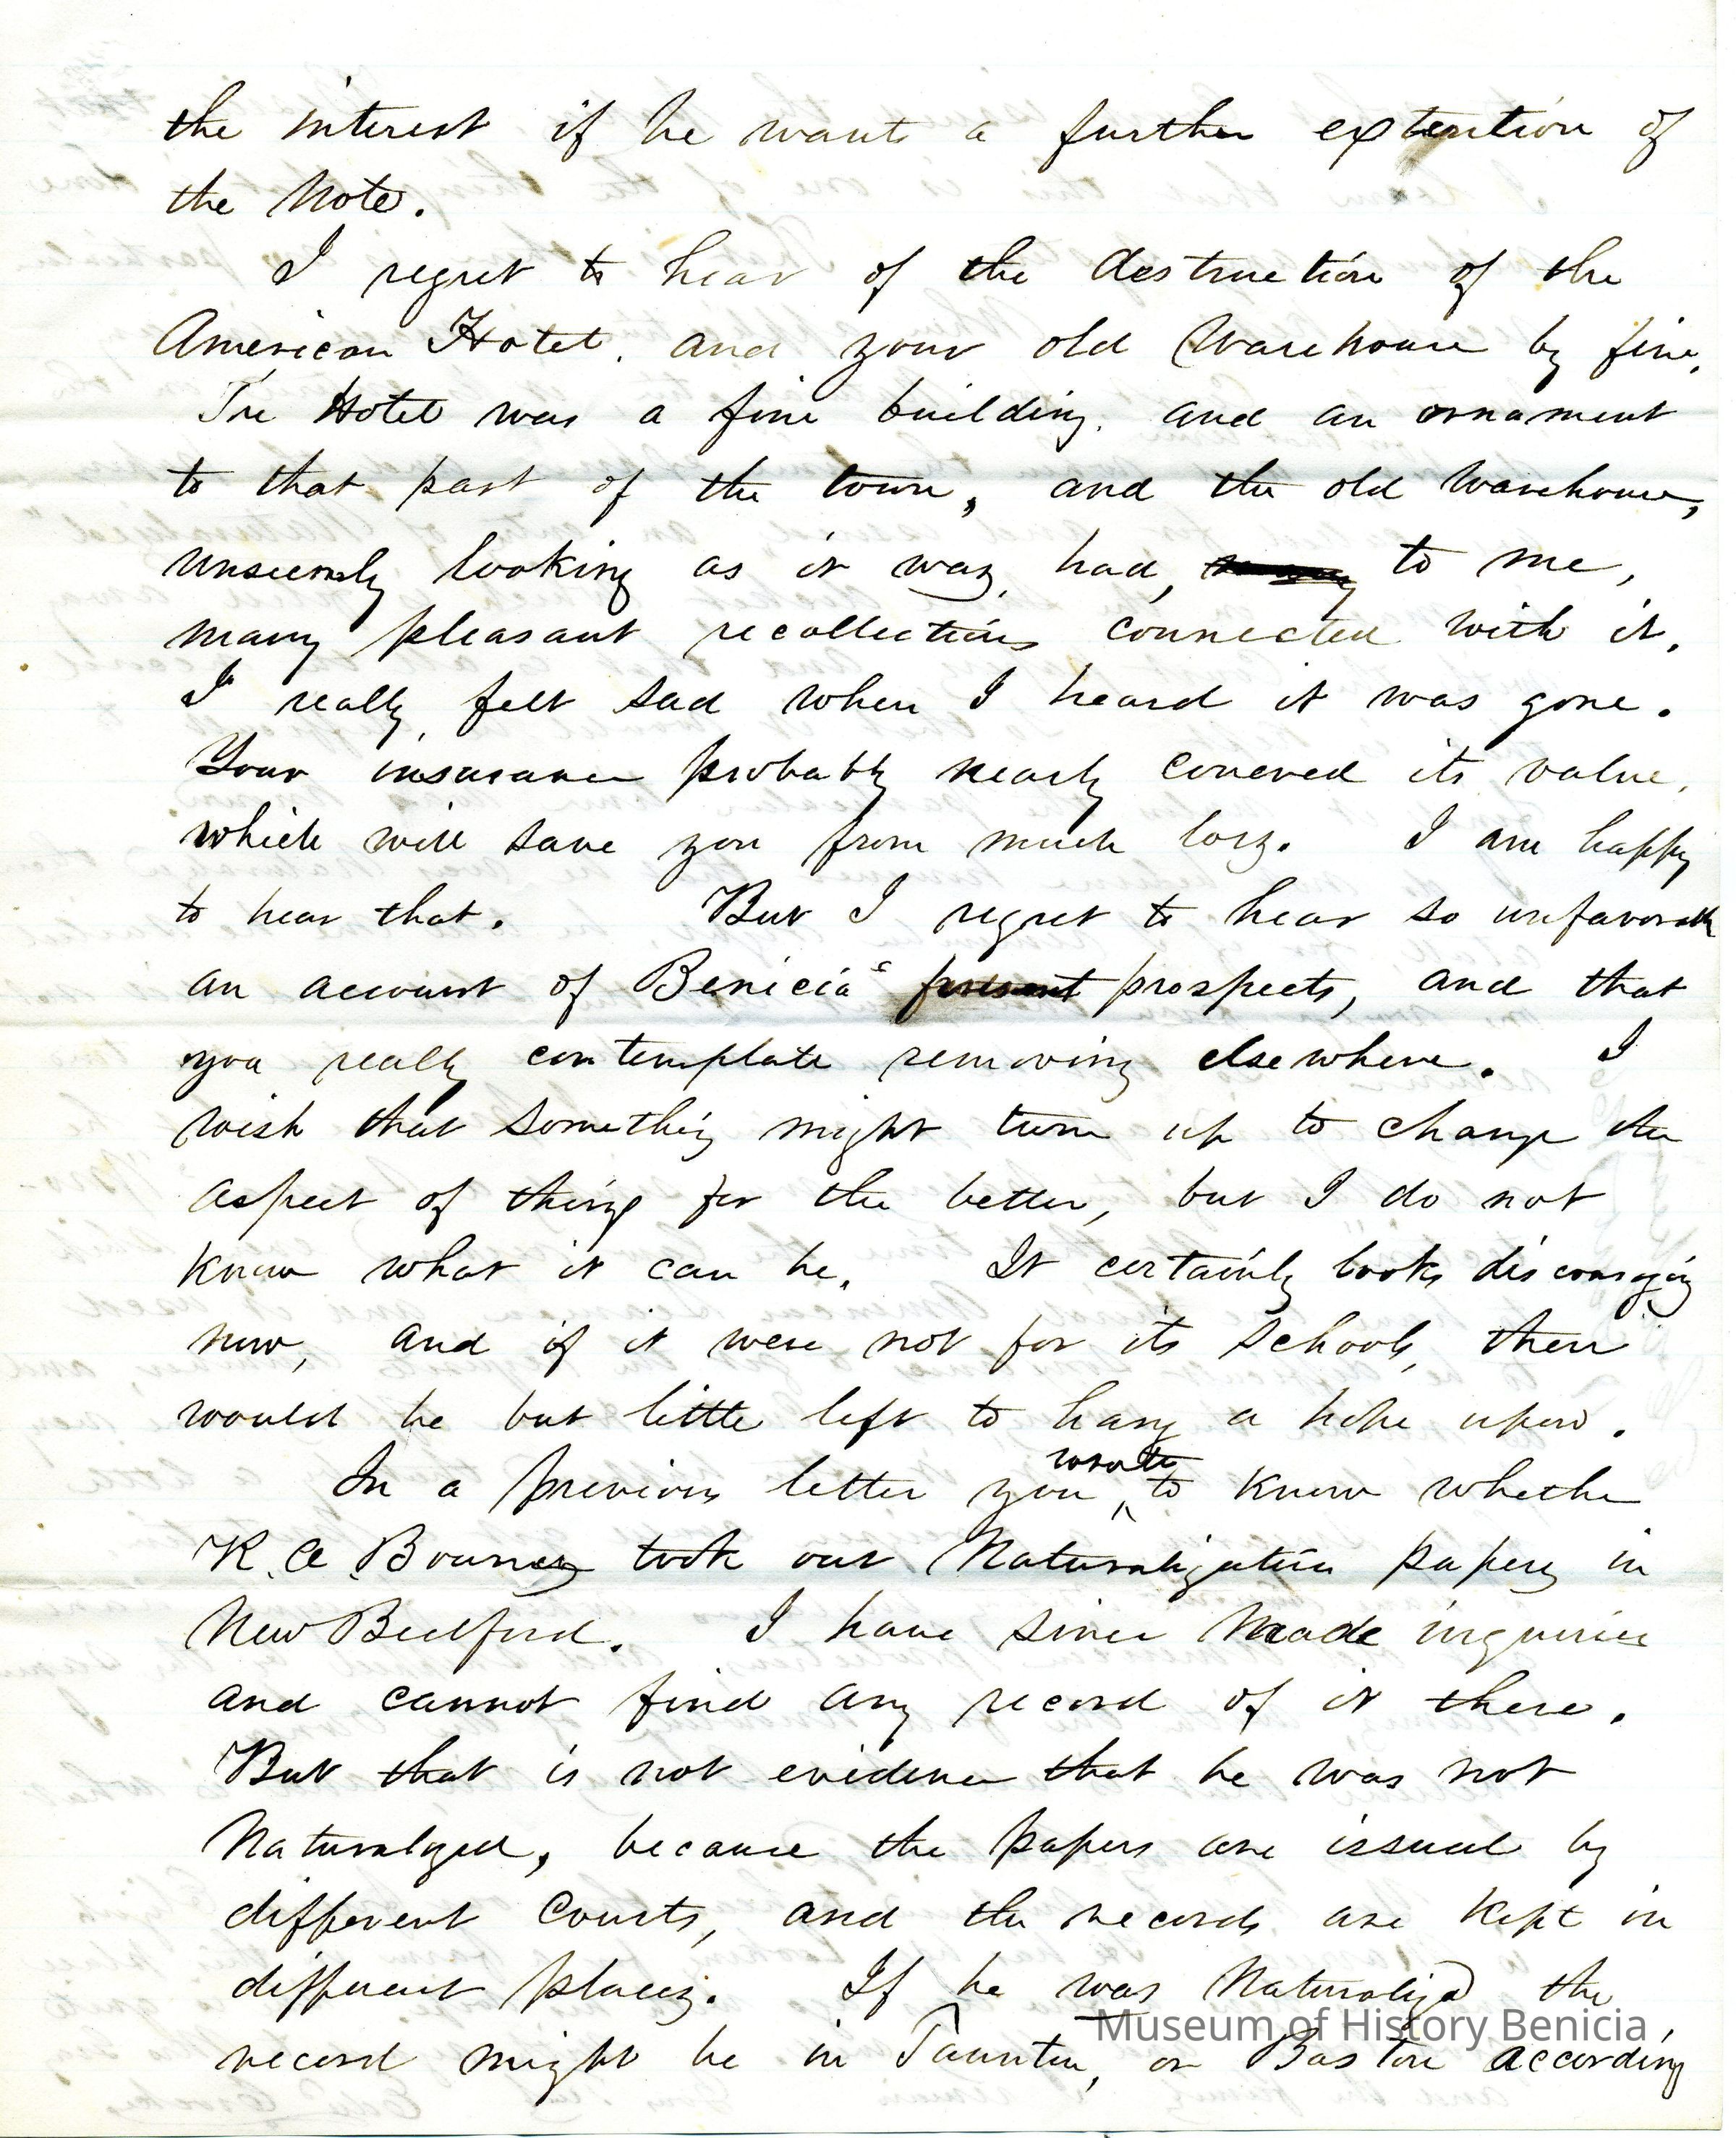 the interest if he wants a further extention of
the Note.
I regret to hear of the destruction of the
American Hotel. and your old Warehouse by fire,
The Hotel was a fine building. and an ornament
to that part of the town, and the old Warehouse,
unseemly looking as it was, had, to me,
many pleasant recollections connected with it.
I really felt sad when I heard it was gone.
Your insurance probably nearly covered its value,
which will save you from much loss. I am happy
to hear that. But I regret to hear so unfavorable
an account of Benicia's present prospects, and that
you really contemplate removing elsewhere. I
wish that something might turn up to change the
aspect of things for the better, but I do not
know what it can be. It certainly looks discouraging
now, and if it were not for its schools, there
would be but little left to hang a hope upon.
In a previous letter you wrote to know whether
K. A. took out Naturalization papers in
New Bedford. I have since made inquiries
and cannot find any record of it there.
But that is not evidence that he was not
Naturalized, because the papers are issued by
different Courts, and the records are kept in
different places. If he was Naturalized the
record might be in Taunton, or Boston according
Museum of History Benicia